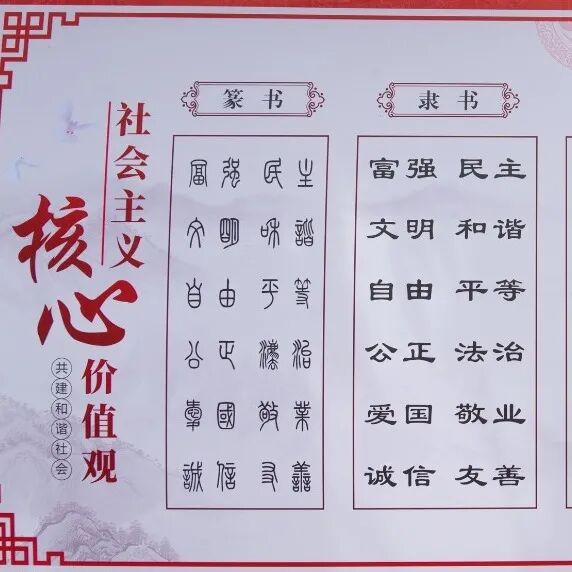 社会主义
核心
价值观
共建和谐社会
篆书
富强 民主
文明 和谐
自由 平等
公正 法治
爱国 敬业
誠信 友善
隶书
富强 民主
文明 和谐
自由 平等
公正 法治
爱国 敬业
诚信 友善